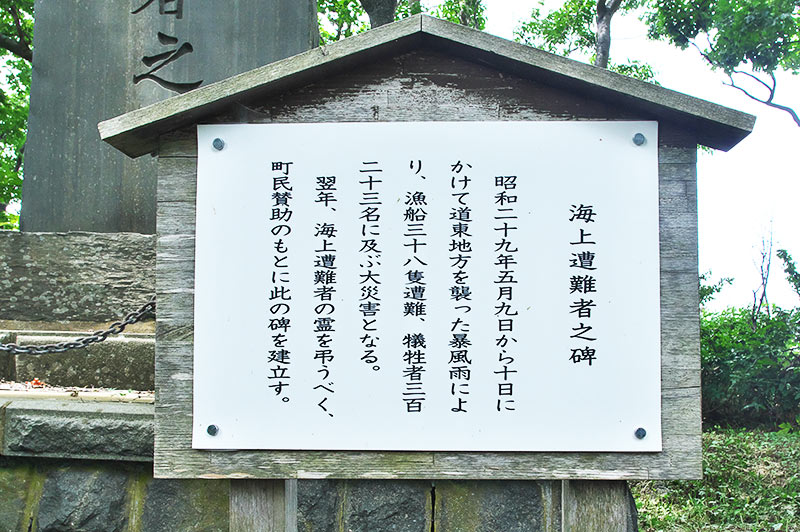 海上遭難者之碑
昭和二十九年五月九日から十日に
かけて道東地方を襲った暴風雨によ
り、漁船三十八隻遭難、犠牲者三百
二十三名に及ぶ大災害となる。
翌年、海上遭難者の霊を弔うべく、
町民賛助のもとに此の碑を建立す。
者之